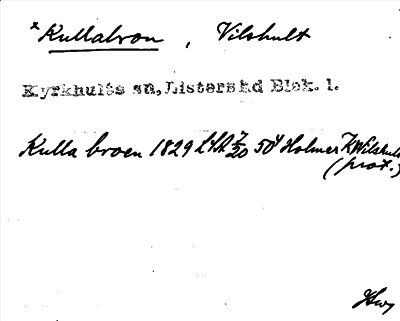 x Kullabron, Vilshult
Kyrkhults sn, Listers hd Blek. l.
Kulla broen 1829 LSA 7/20 50 4 Holmer K Wilshult
(prot.)